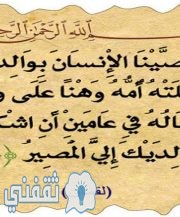 اللَّهِ الرَّحْمَٰنِ الرَّحِـ
صَّيْنَا الْإِنسَانَ بِوَالِد
لَتْهُ أُمُّهُ وَهْنًا عَلَى و
الُهُ فِي عَامَيْنِ أَنِ اشْكـ
لِدَيْكَ إِلَيَّ الْمَصِيرُ
ثقفني